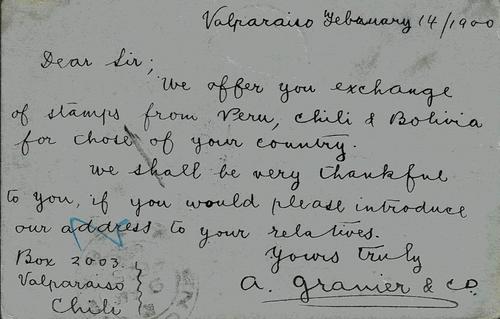 Valparaiso February 14/1900
Dear Sir;
We offer you exchange
of stamps from Peru, Chili & Bolivia
for those of your country.
We shall be very thankful
to you, if you would please introduce
our address to your relatives.
Yours truly
Box 2003.
Valparaiso
Chili
A. Granier & Co.